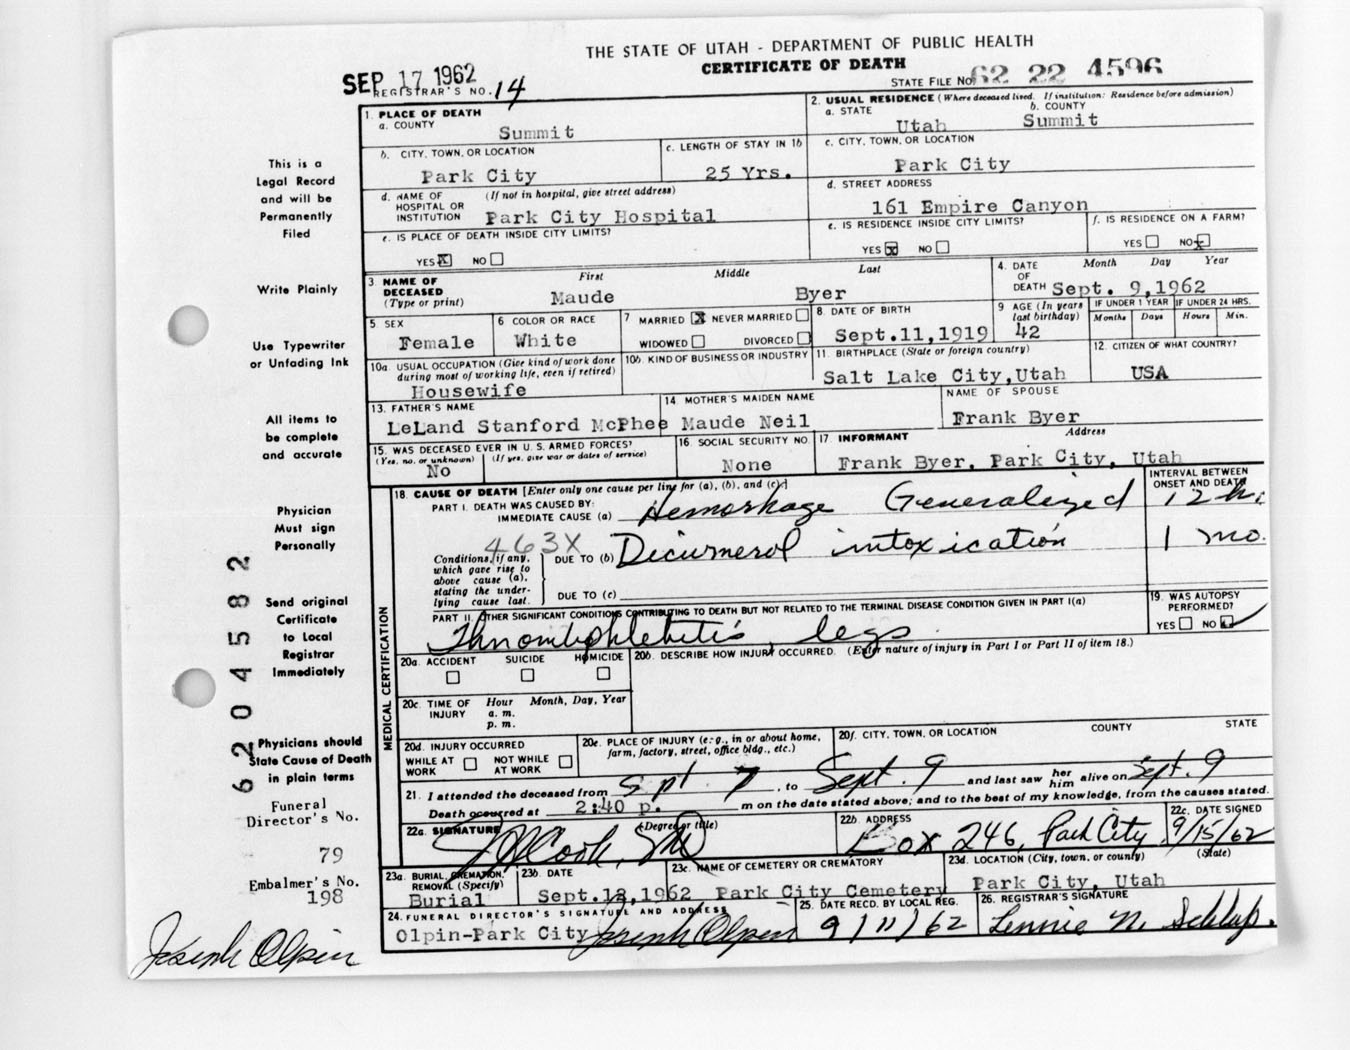 THE STATE OF UTAH - DEPARTMENT OF PUBLIC HEALTH
CERTIFICATE OF DEATH
SEP 17 1962
REGISTRAR'S NO. 14
STATE FILE NO. 62 22 4596
1. PLACE OF DEATH
a. COUNTY Summit
2. USUAL RESIDENCE (Where deceased lived. If institution: Residence before admission)
a. STATE Utah b. COUNTY Summit
b. CITY, TOWN, OR LOCATION Park City
c. LENGTH OF STAY IN 1b 25 Yrs.
c. CITY, TOWN, OR LOCATION Park City
d. NAME OF HOSPITAL OR INSTITUTION (If not in hospital, give street address) Park City Hospital
d. STREET ADDRESS 161 Empire Canyon
e. IS PLACE OF DEATH INSIDE CITY LIMITS?
YES X NO
e. IS RESIDENCE INSIDE CITY LIMITS?
YES X NO
f. IS RESIDENCE ON A FARM?
YES NO X
3. NAME OF DECEASED (Type or print)
First Middle Last
Maude Byer
4. DATE OF DEATH Month Day Year
Sept. 9,1962
5. SEX Female
6 COLOR OR RACE White
7 MARRIED X NEVER MARRIED
WIDOWED DIVORCED
8. DATE OF BIRTH Sept.11,1919
9 AGE (In years last birthday) 42
IF UNDER 1 YEAR Months Days
IF UNDER 24 HRS. Hours Min.
10a. USUAL OCCUPATION (Give kind of work done during most of working life, even if retired)
Housewife
10b. KIND OF BUSINESS OR INDUSTRY
11. BIRTHPLACE (State or foreign country)
Salt Lake City,Utah
12. CITIZEN OF WHAT COUNTRY?
USA
13. FATHER'S NAME
LeLand Stanford McPhee
14 MOTHER'S MAIDEN NAME
Maude Neil
NAME OF SPOUSE
Frank Byer
15. WAS DECEASED EVER IN U. S. ARMED FORCES?
(Yes, no, or unknown) (If yes, give war or dates of service)
No
16. SOCIAL SECURITY NO.
None
17. INFORMANT Address
Frank Byer, Park City, Utah
18. CAUSE OF DEATH [Enter only one cause per line for (a), (b), and (c).]
INTERVAL BETWEEN ONSET AND DEATH
PART I. DEATH WAS CAUSED BY:
IMMEDIATE CAUSE (a) Hemorhage Generalized 12 hr.
463X
Conditions, if any, which gave rise to above cause (a), stating the underlying cause last.
DUE TO (b) Dicumerol intoxication 1 mo.
DUE TO (c)
PART II. OTHER SIGNIFICANT CONDITIONS CONTRIBUTING TO DEATH BUT NOT RELATED TO THE TERMINAL DISEASE CONDITION GIVEN IN PART I(a)
Thrombphlebitis, legs
19. WAS AUTOPSY PERFORMED?
YES NO ✓
20a. ACCIDENT SUICIDE HOMICIDE
20b. DESCRIBE HOW INJURY OCCURRED. (Enter nature of injury in Part I or Part II of item 18.)
20c. TIME OF INJURY Hour a. m. p. m. Month, Day, Year
20d. INJURY OCCURRED
WHILE AT WORK NOT WHILE AT WORK
20e. PLACE OF INJURY (e. g., in or about home, farm, factory, street, office bldg., etc.)
20f. CITY, TOWN, OR LOCATION COUNTY STATE
21. I attended the deceased from Spt 7, to Sept. 9 and last saw her him alive on Spt. 9
Death occurred at 2:40 p. m on the date stated above; and to the best of my knowledge, from the causes stated.
22a. SIGNATURE (Degree or title)
Cook, MD
22b. ADDRESS
Box 246, Park City
22c. DATE SIGNED
9/15/62
23a. BURIAL, CREMATION, REMOVAL (Specify)
Burial
23b. DATE
Sept.12,1962
23c. NAME OF CEMETERY OR CREMATORY
Park City Cemetery
23d. LOCATION (City, town, or county) (State)
Park City, Utah
24. FUNERAL DIRECTOR'S SIGNATURE AND ADDRESS
Olpin-Park City Joseph Olpin
25. DATE RECD. BY LOCAL REG.
9/11/62
26. REGISTRAR'S SIGNATURE
MEDICAL CERTIFICATION
This is a
Legal Record
and will be
Permanently
Filed
Write Plainly
Use Typewriter
or Unfading Ink
All items to
be complete
and accurate
Physician
Must sign
Personally
Send original
Certificate
to Local
Registrar
Immediately
Physicians should
State Cause of Death
in plain terms
Funeral
Director's No.
79
Embalmer's No.
198
Joseph Olpin
62 04582